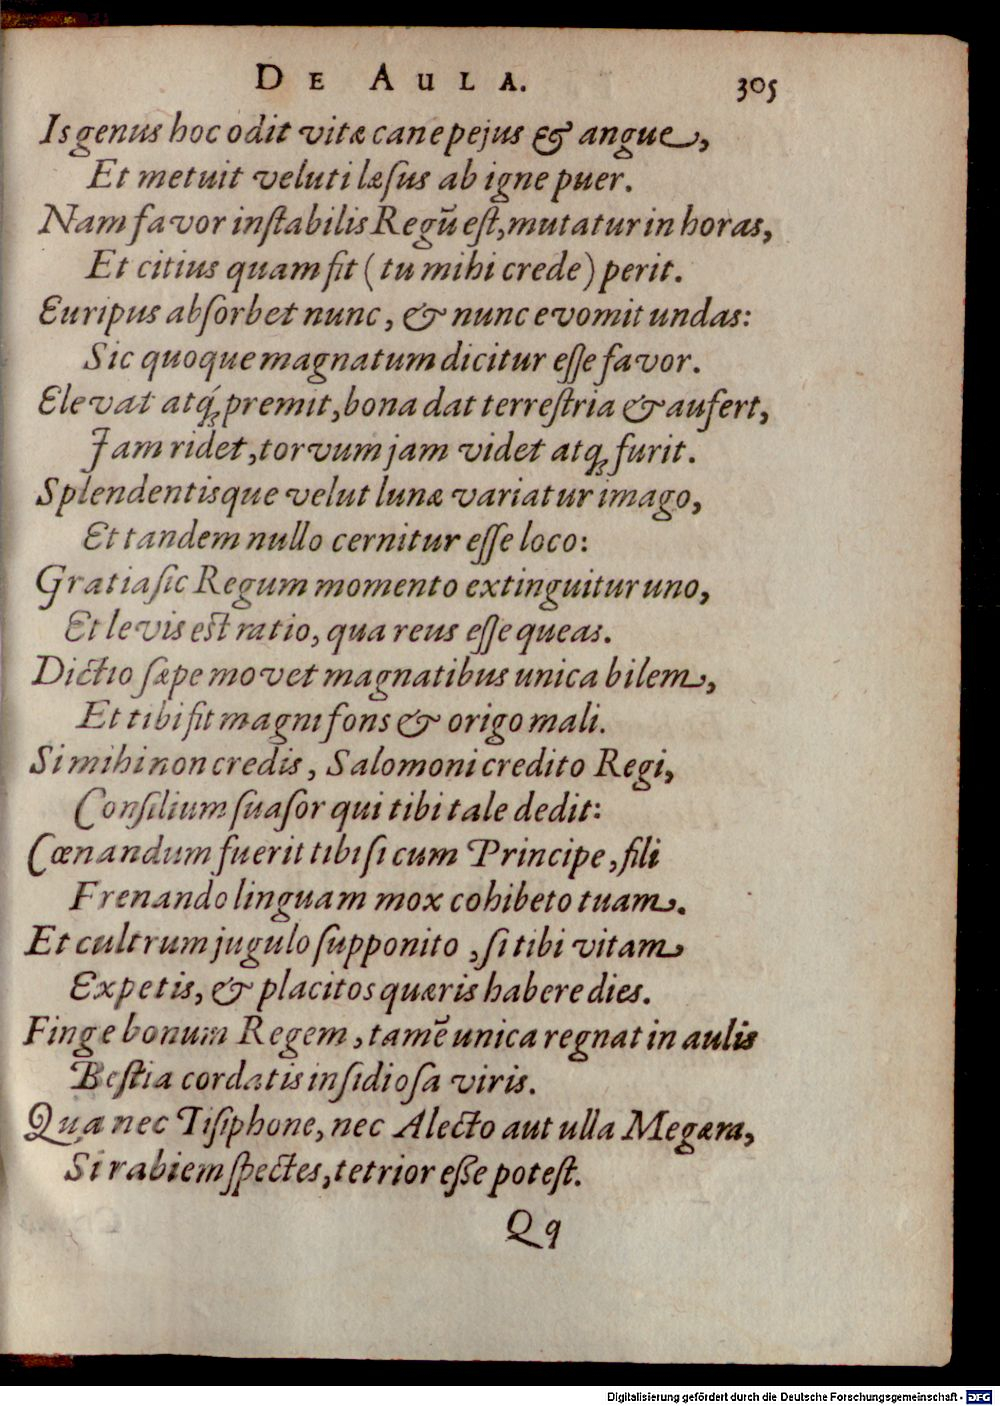 DE AULA. 305
Is genus hoc odit vitæ cane pejus & angue,
Et metuit veluti læsus ab igne puer.
Nam favor instabilis Regū est, mutatur in horas,
Et citius quam fit (tu mihi crede) perit.
Euripus absorbet nunc, & nunc evomit undas:
Sic quoque magnatum dicitur esse favor.
Elevat atq́; premit, bona dat terrestria & aufert,
Jam ridet, torvum jam videt atq; furit.
Splendentisque velut lunæ variatur imago,
Et tandem nullo cernitur esse loco:
Gratia sic Regum momento extinguitur uno,
Et levis est ratio, qua reus esse queas.
Dictio sæpe movet magnatibus unica bilem,
Et tibi fit magni fons & origo mali.
Si mihi non credis, Salomoni credito Regi,
Consilium suasor qui tibi tale dedit:
Cœnandum fuerit tibi si cum Principe, fili
Frenando linguam mox cohibeto tuam.
Et cultrum jugulo supponito, si tibi vitam
Expetis, & placitos quæris habere dies.
Finge bonum Regem, tamē unica regnat in aulis
Bestia cordatis insidiosa viris.
Qua nec Tisiphone, nec Alecto aut ulla Megæra,
Si rabiem spectes, tetrior esse potest.
Qq
Digitalisierung gefördert durch die Deutsche Forschungsgemeinschaft - DFG